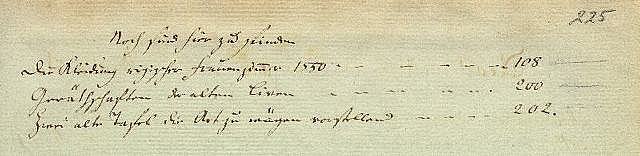 225
Noch sind hier zu finden
Die Kleidung rigischer Frauenzimmer 1550 - - - - - 108
Geräthschaften der alten Liven - - - - - 200
Zwei alte Tafel die Art zu wägen vorstellend - - - - 202.